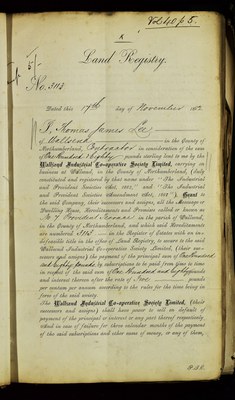 Vol 40 p 5.
K
Land Registry.
No. 3113
Dated this 17th day of November
I, Thomas James Lee
of Wallsend in the County of
Northumberland, in consideration of the sum
of One Hundred & eighty pounds sterling lent to me by the
Wallsend Industrial Co-operative Society Limited, carrying on
business at Wallsend, in the County of Northumberland, (duly
constituted and registered by that name under "The Industrial
and Provident Societies Act, and "The Industrial
and Provident Societies Amendment Act, Grant to
the said Company, their successors and assigns, all the Messuage or
Dwelling House, Hereditaments and Premises called or known as
No. 7 Provident Terrace in the parish of Wallsend,
in the County of Northumberland, and which said Hereditaments
are numbered 3113 in the Register of Estates with an in-
defeasible title in the office of Land Registry, to secure to the said
Wallsend Industrial Co-operative Society Limited, (their suc-
cessors and assigns) the payment of the principal sum of One Hundred
and Eighty pounds by subscriptions to be paid from time to time
in respect of the said sum of One Hundred and Eighty pounds
and interest thereon after the rate of Five pounds
per centum per annum according to the rules for the time being in
force of the said society.
The Wallsend Industrial Co-operative Society Limited, (their
successors and assigns) shall have power to sell on default of
payment of the principal or interest or any part thereof respectively.
And in case of failure for three calendar months of the payment
of the said subscriptions and other sums of money, or any of them,